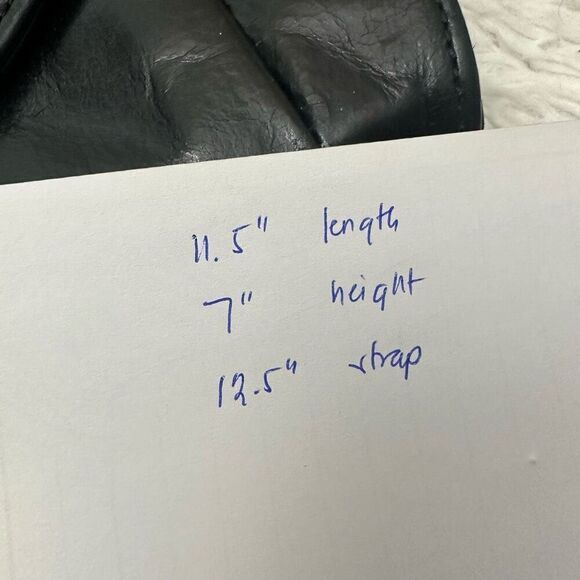 11.5" length
7" height
12.5" strap